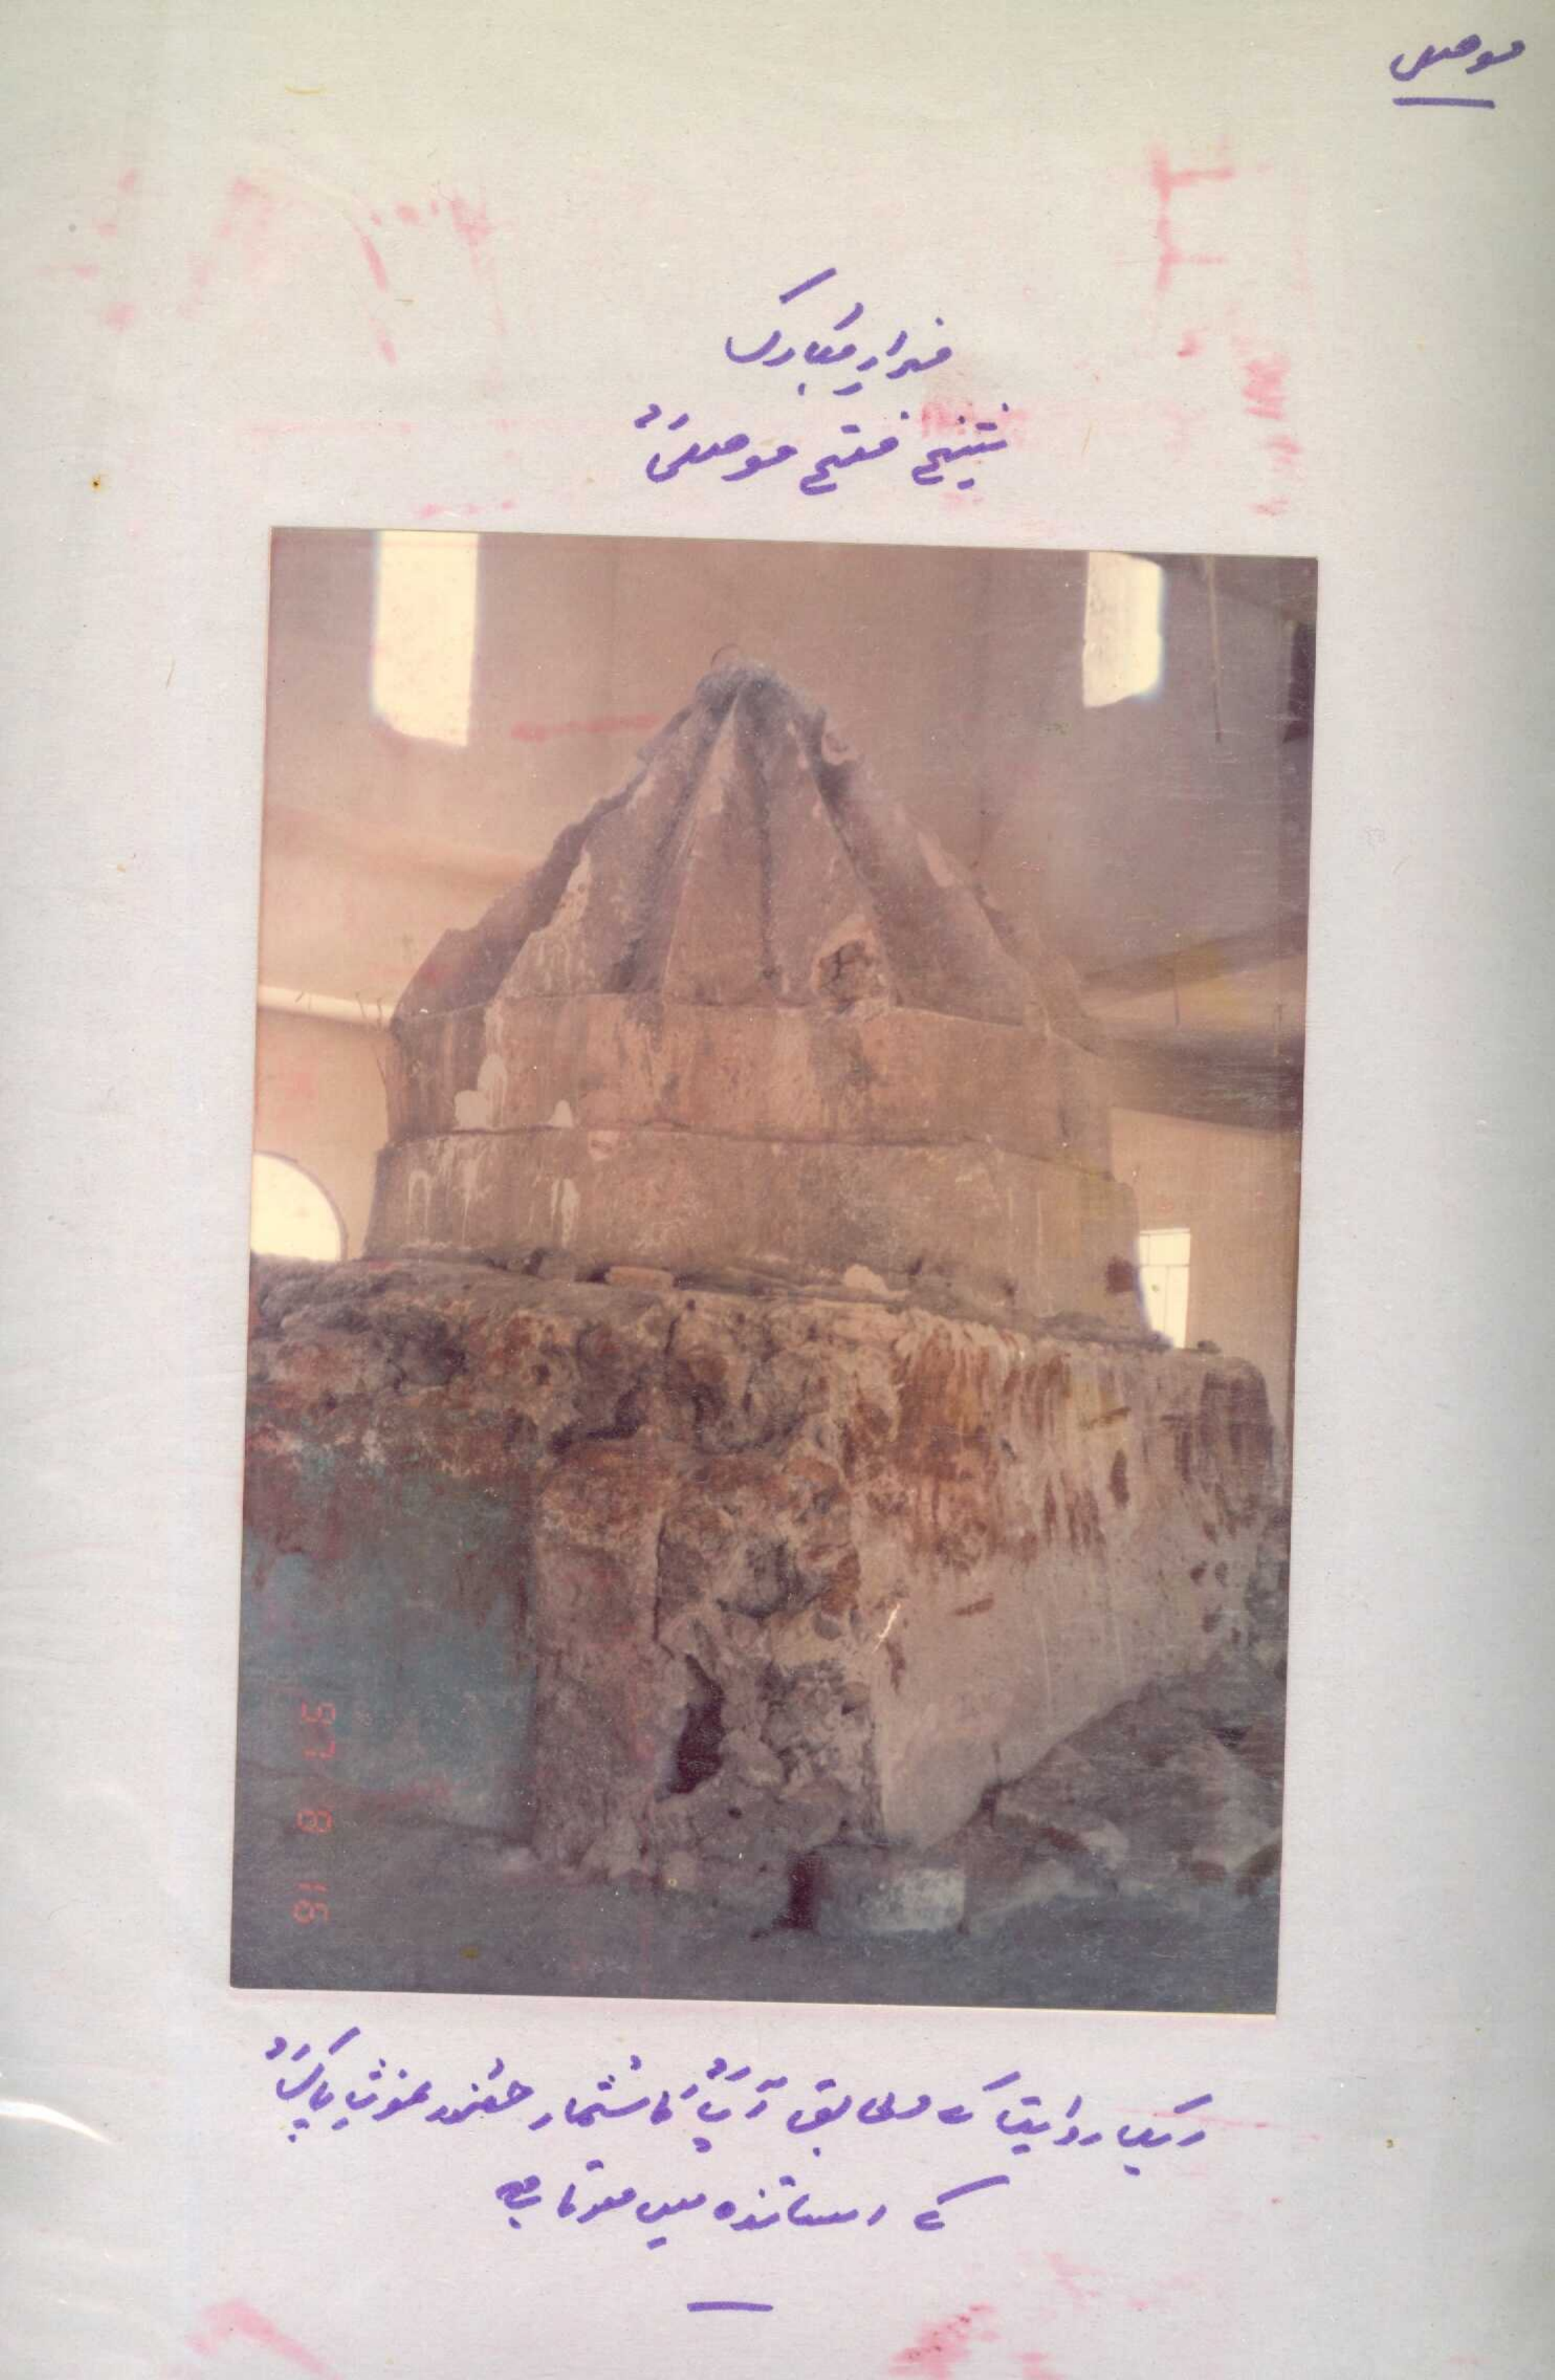 موصل
مزارِ مبارک
شیخ فتح موصلیؒ
ایک روایت کے مطابق آپؒ کا شمار حضور غوثِ پاکؒ
کے اساتذہ میں ہوتا ہے